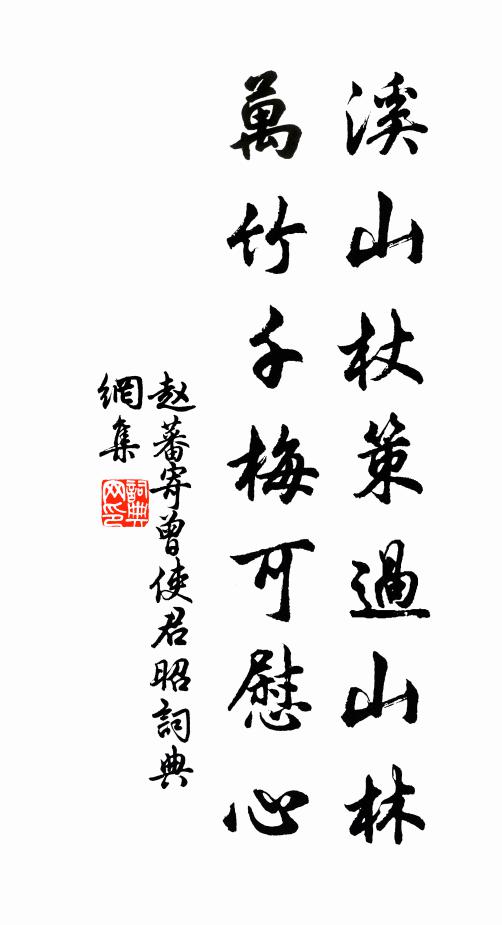 溪山杖策過山林
萬竹千梅可慰心
赵蕃寄曾使君昭詞典
網集
詞典
网印